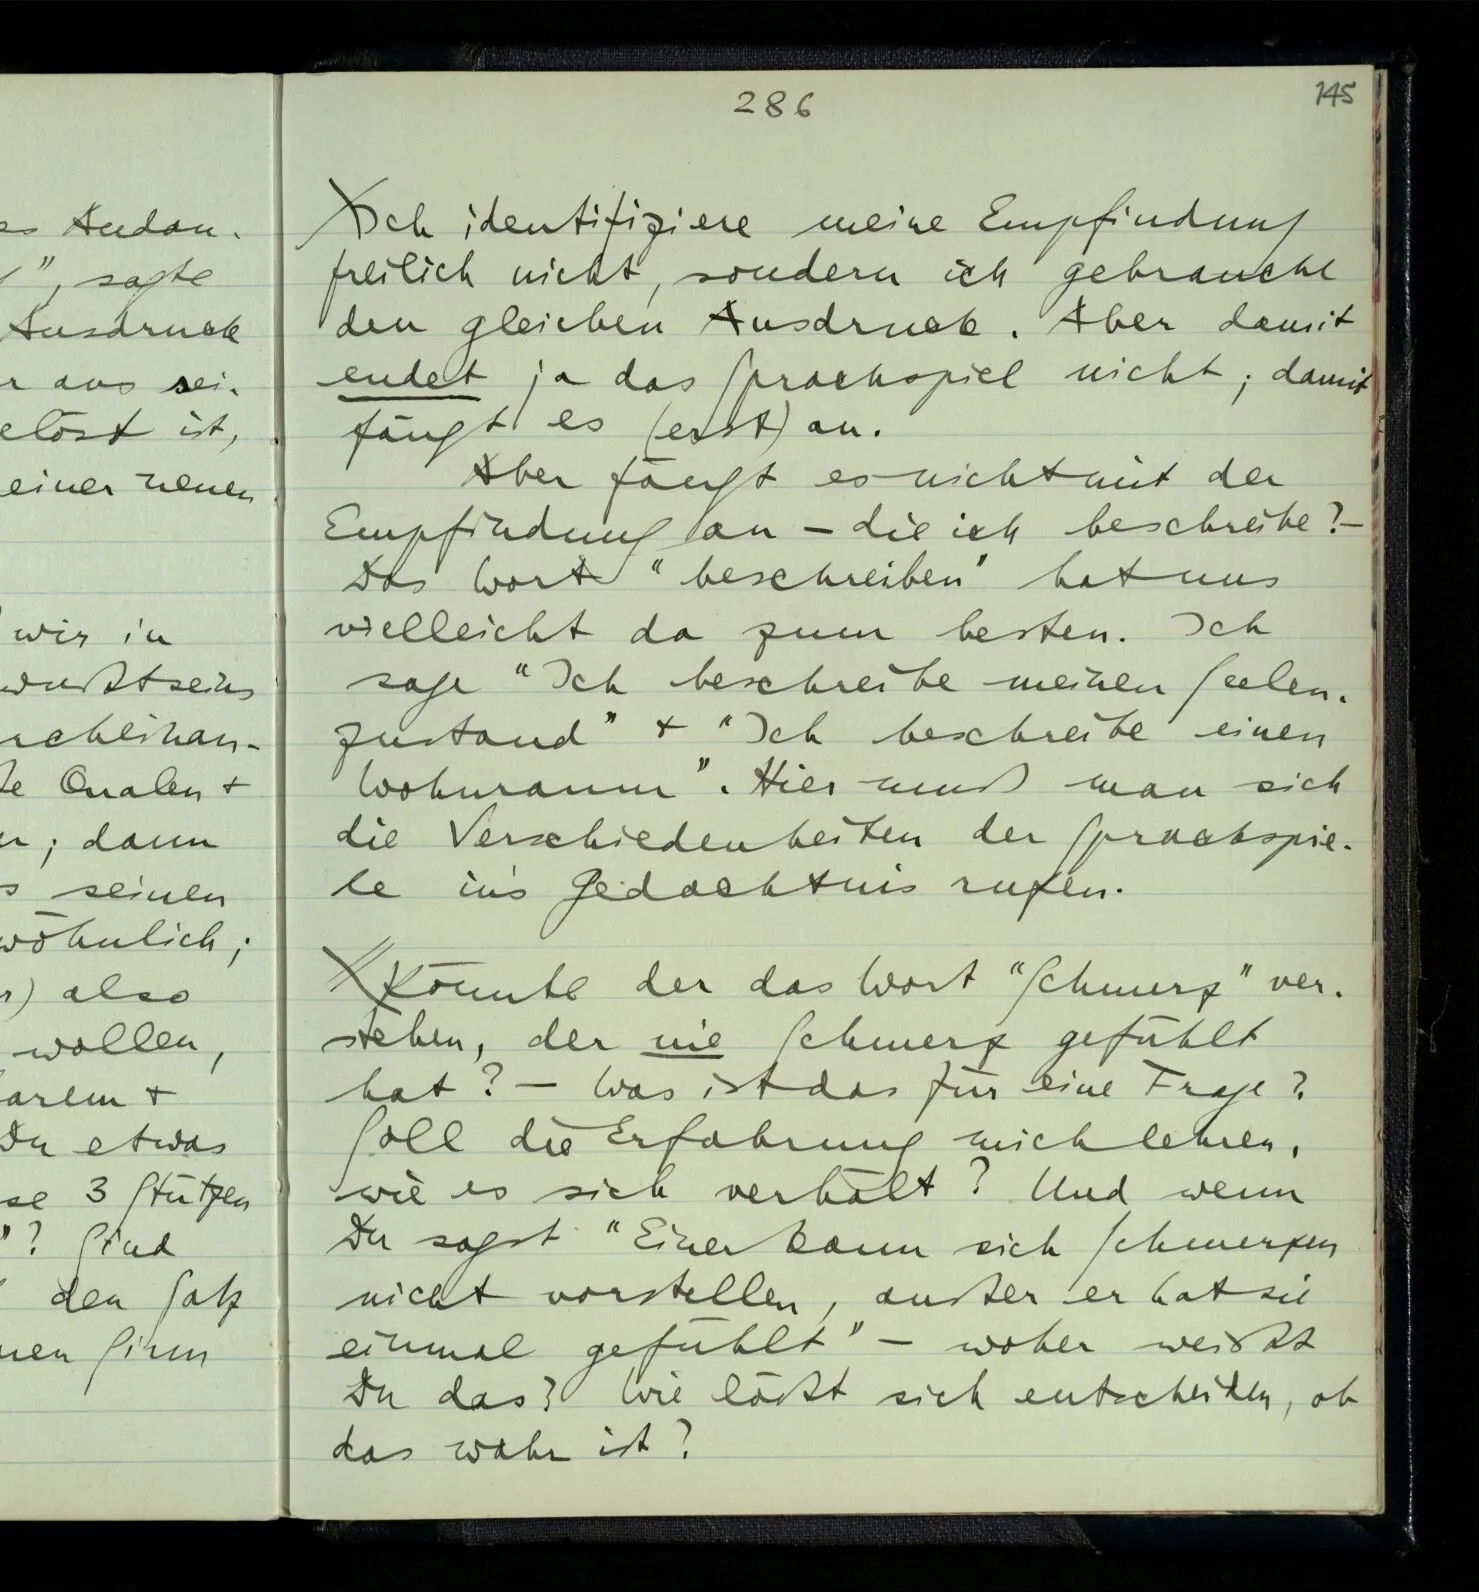 286
145
Ich identifiziere meine Empfindung
freilich nicht, sondern ich gebrauche
den gleichen Ausdruck. Aber damit
endet ja das Sprachspiel nicht; damit
fängt es (erst) an.
Aber fängt es nicht mit der
Empfindung an – die ich beschreibe? –
Das Wort "beschreiben" hat uns
vielleicht da zum besten. Ich
sage "Ich beschreibe meinen Seelen-
zustand" + "Ich beschreibe einen
Wohnraum". Hier muß man sich
die Verschiedenheiten der Sprachspie-
le in's Gedächtnis rufen.
Könnte der das Wort "Schmerz" ver-
stehen, der nie Schmerz gefühlt
hat? – Was ist das für eine Frage?
Soll die Erfahrung mich lehren,
wie es sich verhält? Und wenn
Du sagst "Einer kann sich Schmerzen
nicht vorstellen, außer er hat sie
einmal gefühlt" – woher weißt
Du das? Wie läßt sich entscheiden, ob
das wahr ist?
sagte
Ausdruck
aus sei-
ist,
einer neuen
wir in
Qualen +
; dann
seinen
also
wollen,
+
Du etwas
3 Stützen
"? Sind
den Satz
Sinn